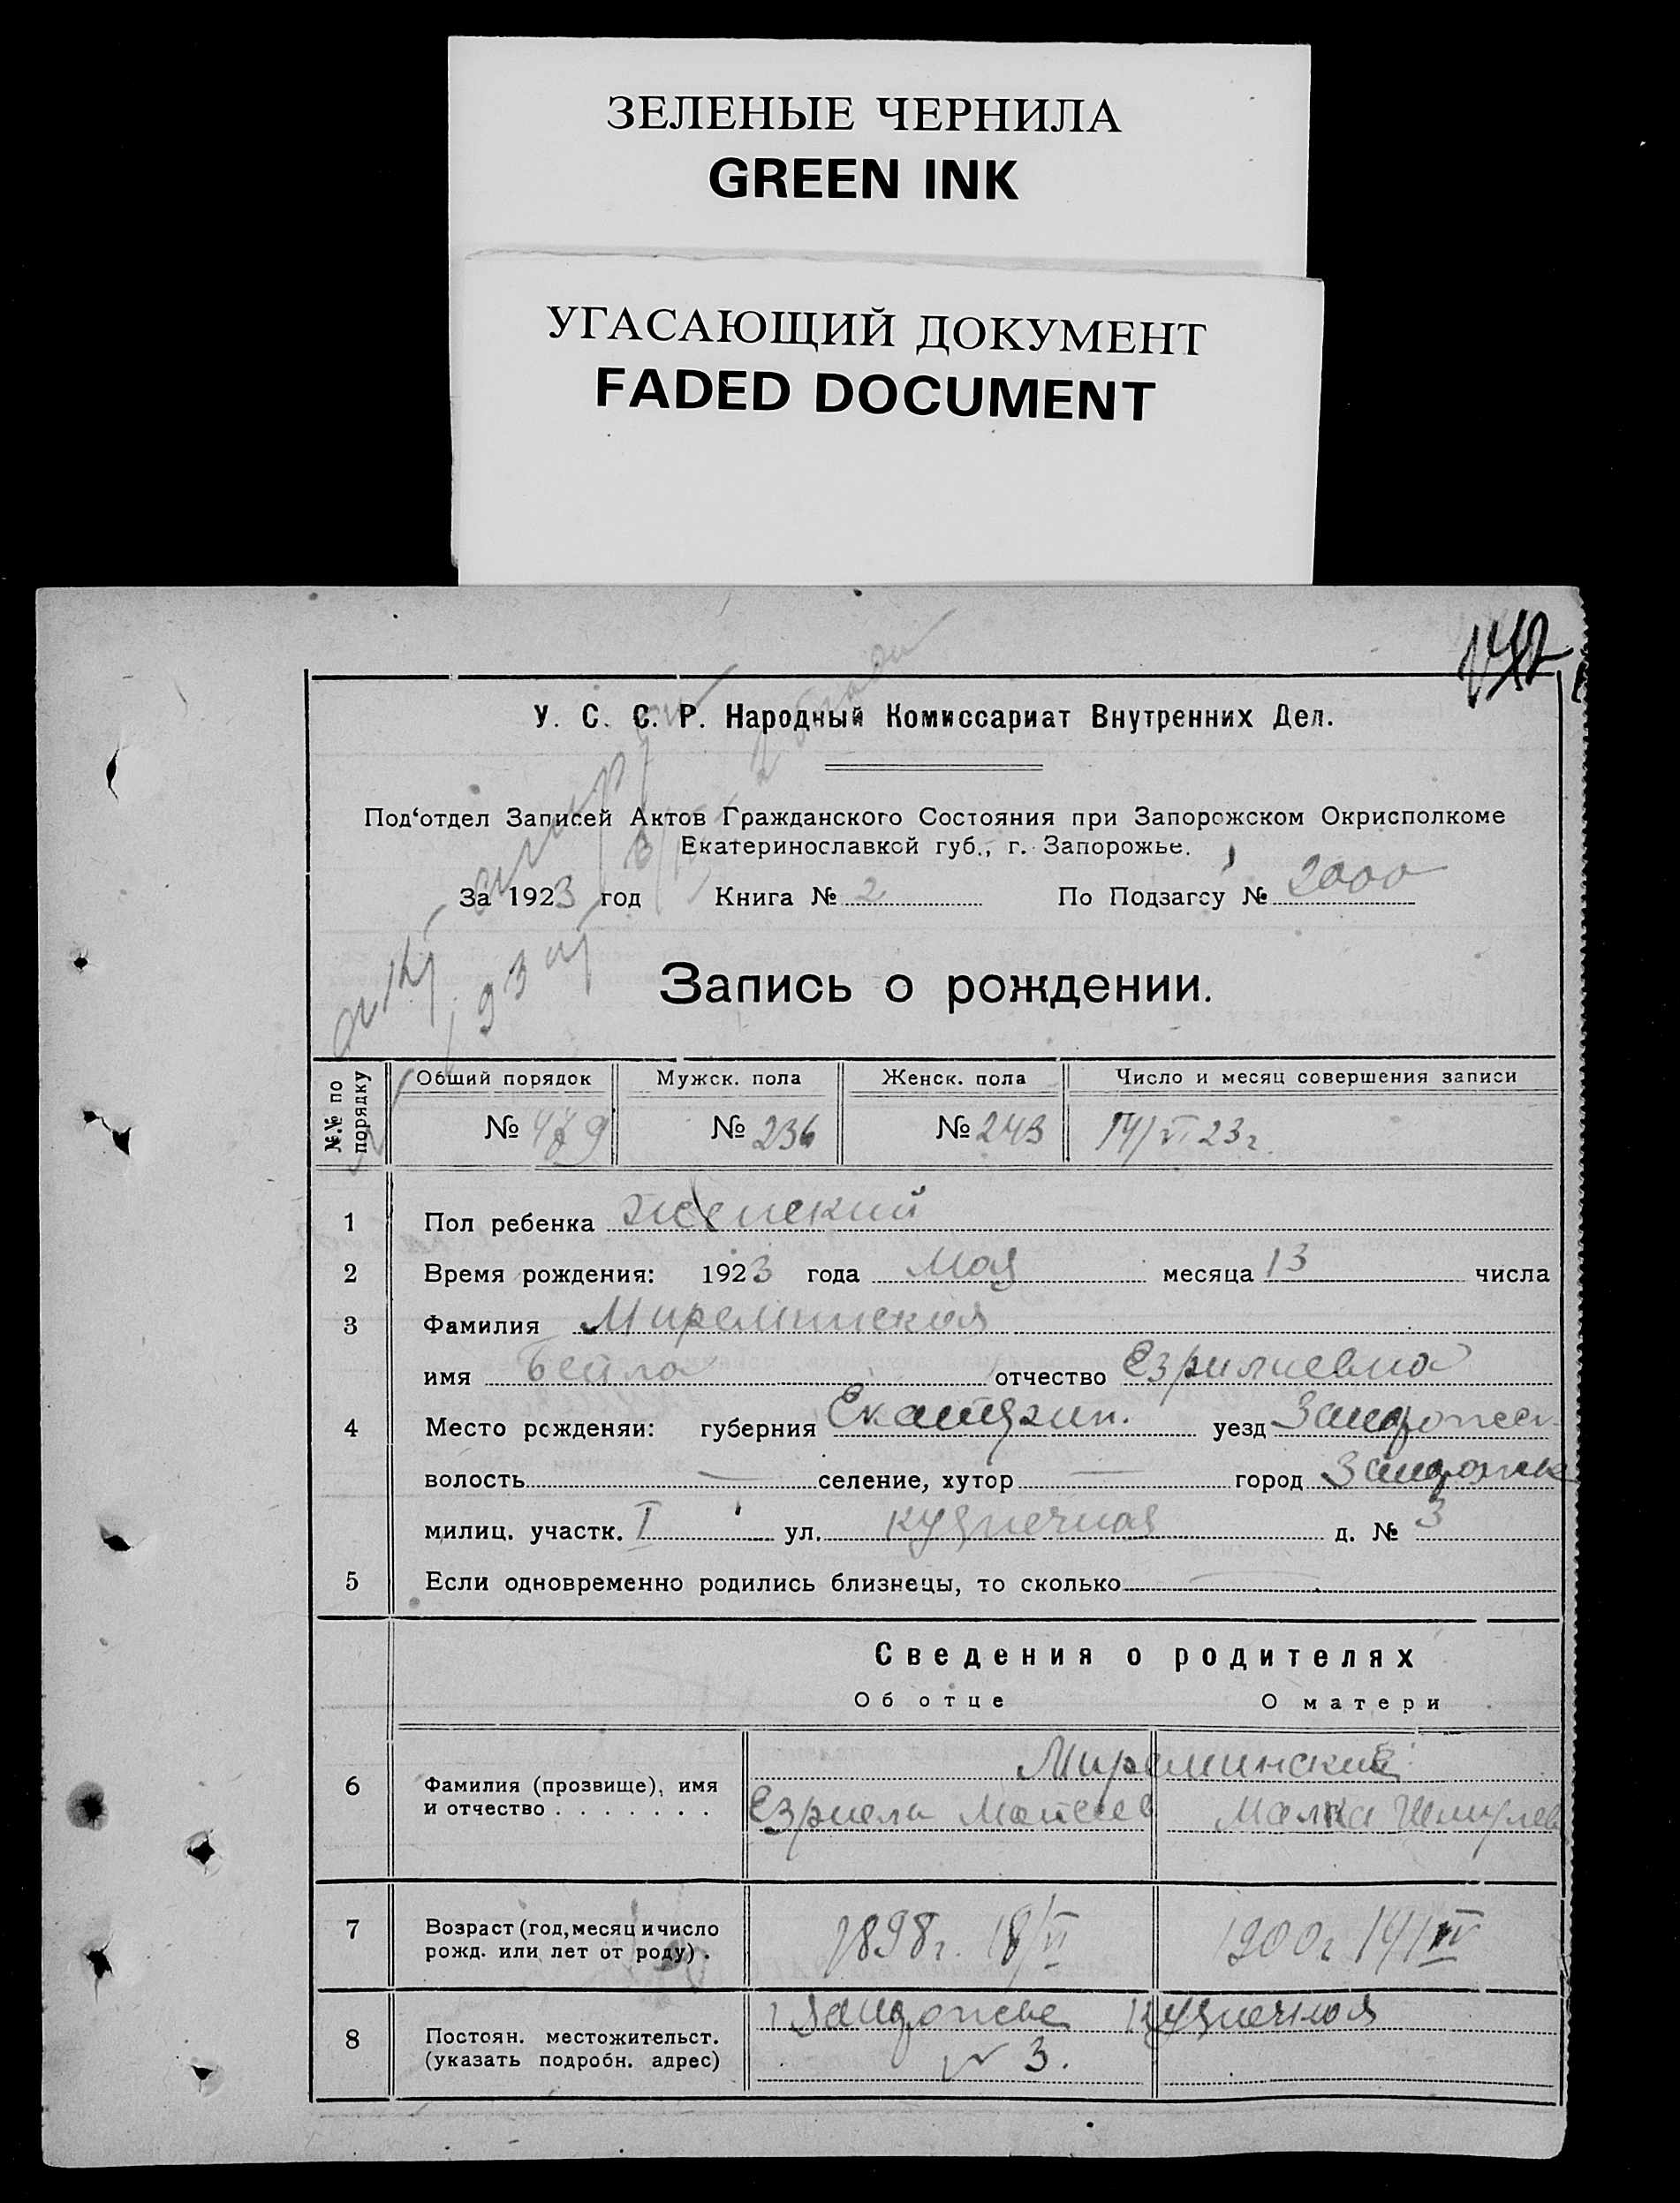 ЗЕЛЕНЫЕ ЧЕРНИЛА
GREEN INK
УГАСАЮЩИЙ ДОКУМЕНТ
FADED DOCUMENT
У. С. С. Р. Народный Комиссариат Внутренних Дел.
Под‘отдел Записей Актов Гражданского Состояния при Запорожском Окрисполкоме
Екатеринославкой губ., г. Запорожье.
За 1923 год Книга № 2 По Подзагсу № 2000
Запись о рождении.
№.№ по порядку
Общий порядок Мужск. пола Женск. пола Число и месяц совершения записи
№ 479 № 236 № 243 14/VI 23 г
1 Пол ребенка женский
2 Время рождения: 1923 года Мая месяца 13 числа
3 Фамилия Миреминская
имя Бейла отчество Езрилиевна
4 Место рожденяи: губерния Екатерин. уезд
волость — селение, хутор — город
милиц. участк. I ул. Кузнечная д. № 3
5 Если одновременно родились близнецы, то сколько —
Сведения о родителях
Об отце О матери
Миреминский
6 Фамилия (прозвище), имя
и отчество . . . . . . . Езриель Малка
7 Возраст (год, месяц и число
рожд. или лет от роду) . 1898 г. 18/VI 1900 г 14/IV
8 Постоян. местожительст.
(указать подробн. адрес)
Запорожье Кузнечная
№ 3.